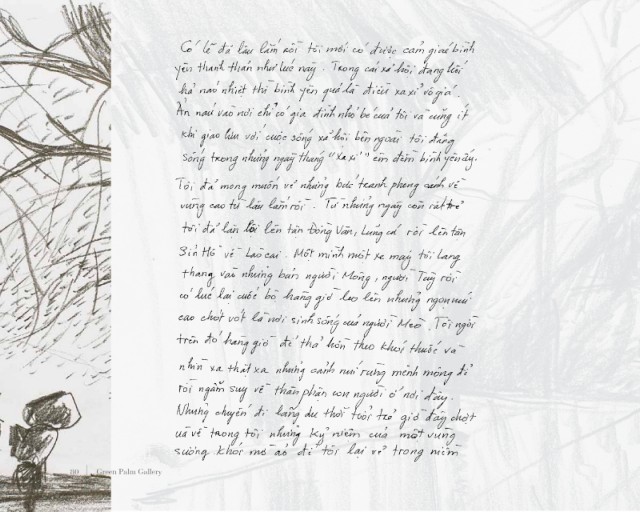 Có lẽ đã lâu lắm rồi tôi mới có được cảm giác bình
yên thanh thản như lúc này. Trong cái xã hội đang hối
hả náo nhiệt thì bình yên quả là điều xa xỉ vô giá.
Ẩn náu vào nơi chỉ có gia đình nhỏ bé của tôi và cũng ít
khi giao lưu với cuộc sống xã hội bên ngoài tôi đang
sống trong những ngày tháng "xa xỉ" êm đềm bình yên ấy.
Tôi đã mong muốn vẽ những bức tranh phong cảnh về
vùng cao từ lâu lắm rồi. Từ những ngày còn rất trẻ
tôi đã lần lên tận Đồng Văn, Lũng Cú rồi lên tân
Sìn Hồ về Lào Cai. Một mình một xe máy tôi lang
thang vào những bản người Mông, người Tày rồi
có lúc lại cuốc bộ hàng giờ leo lên những ngọn núi
cao chót vót là nơi sinh sống của người Mèo. Tôi ngồi
trên đó hàng giờ để thả hồn theo khói thuốc và
nhìn xa thật xa những cánh núi rừng mênh mông để
rồi ngẫm suy về thân phận con người ở nơi đây.
Những chuyến đi lãng du thời tuổi trẻ giờ đây chợt
ùa về trong tôi những kỷ niệm của một vùng
sương khói mờ ảo để tôi lại vẽ trong niềm
80 | Green Palm Gallery